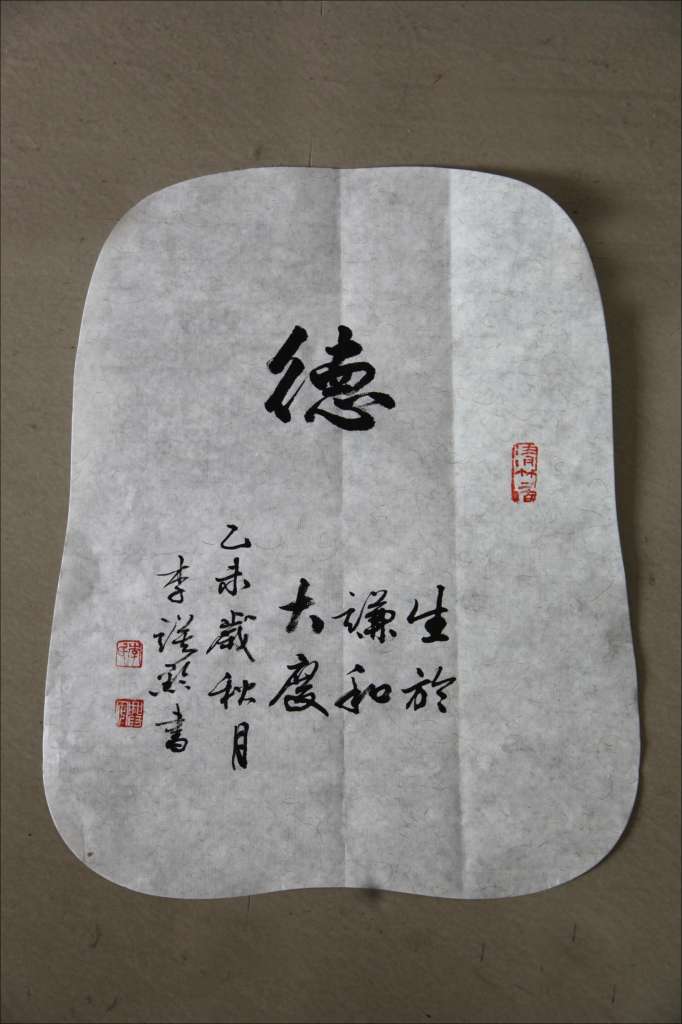 德
生於
謙和
大度
乙未歲秋月
李謹黔書